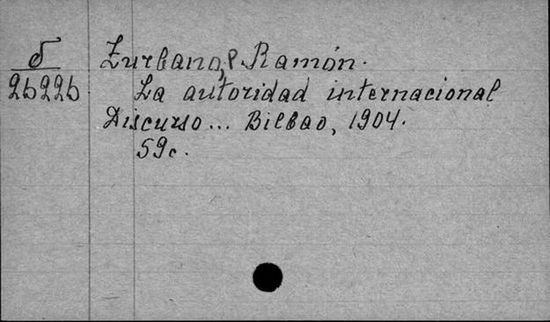 5 Zurbano, Ramón.
26226 La autoridad internacional
Discurso... Bilbao, 1904.
59c.